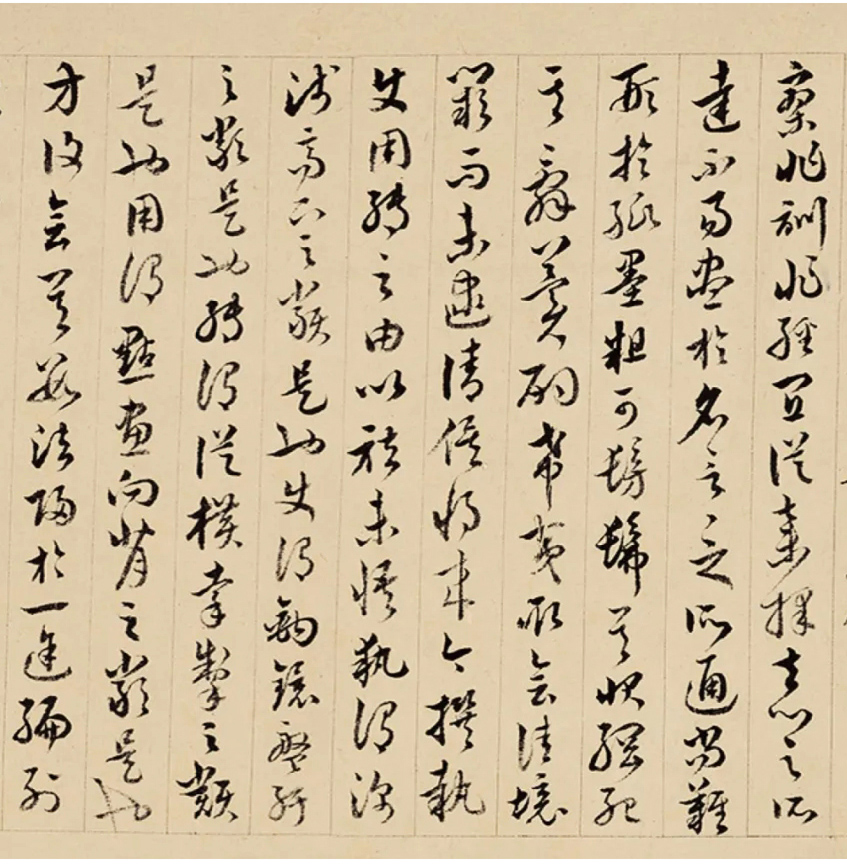 寥非訓非經宜從棄擇夫心之所
達不易盡於名言言之所通尚難
形於紙墨粗可髣髴其狀綱紀
其辭冀酌希夷取會佳境
闕而未逮請俟將來今撰執
使用轉之由以祛未悟執謂深
淺高下之類是也使謂鉤鐶盤紆
之類是也轉謂從橫牽掣之類
是也用謂點畫向背之類是也
方復會其數法歸於一途編列